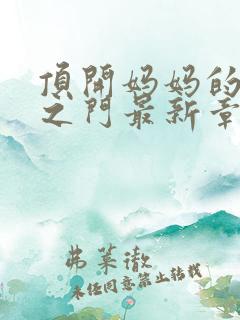 頂開妈妈的
之门最新章
弗莱徹
未经同意禁止转载